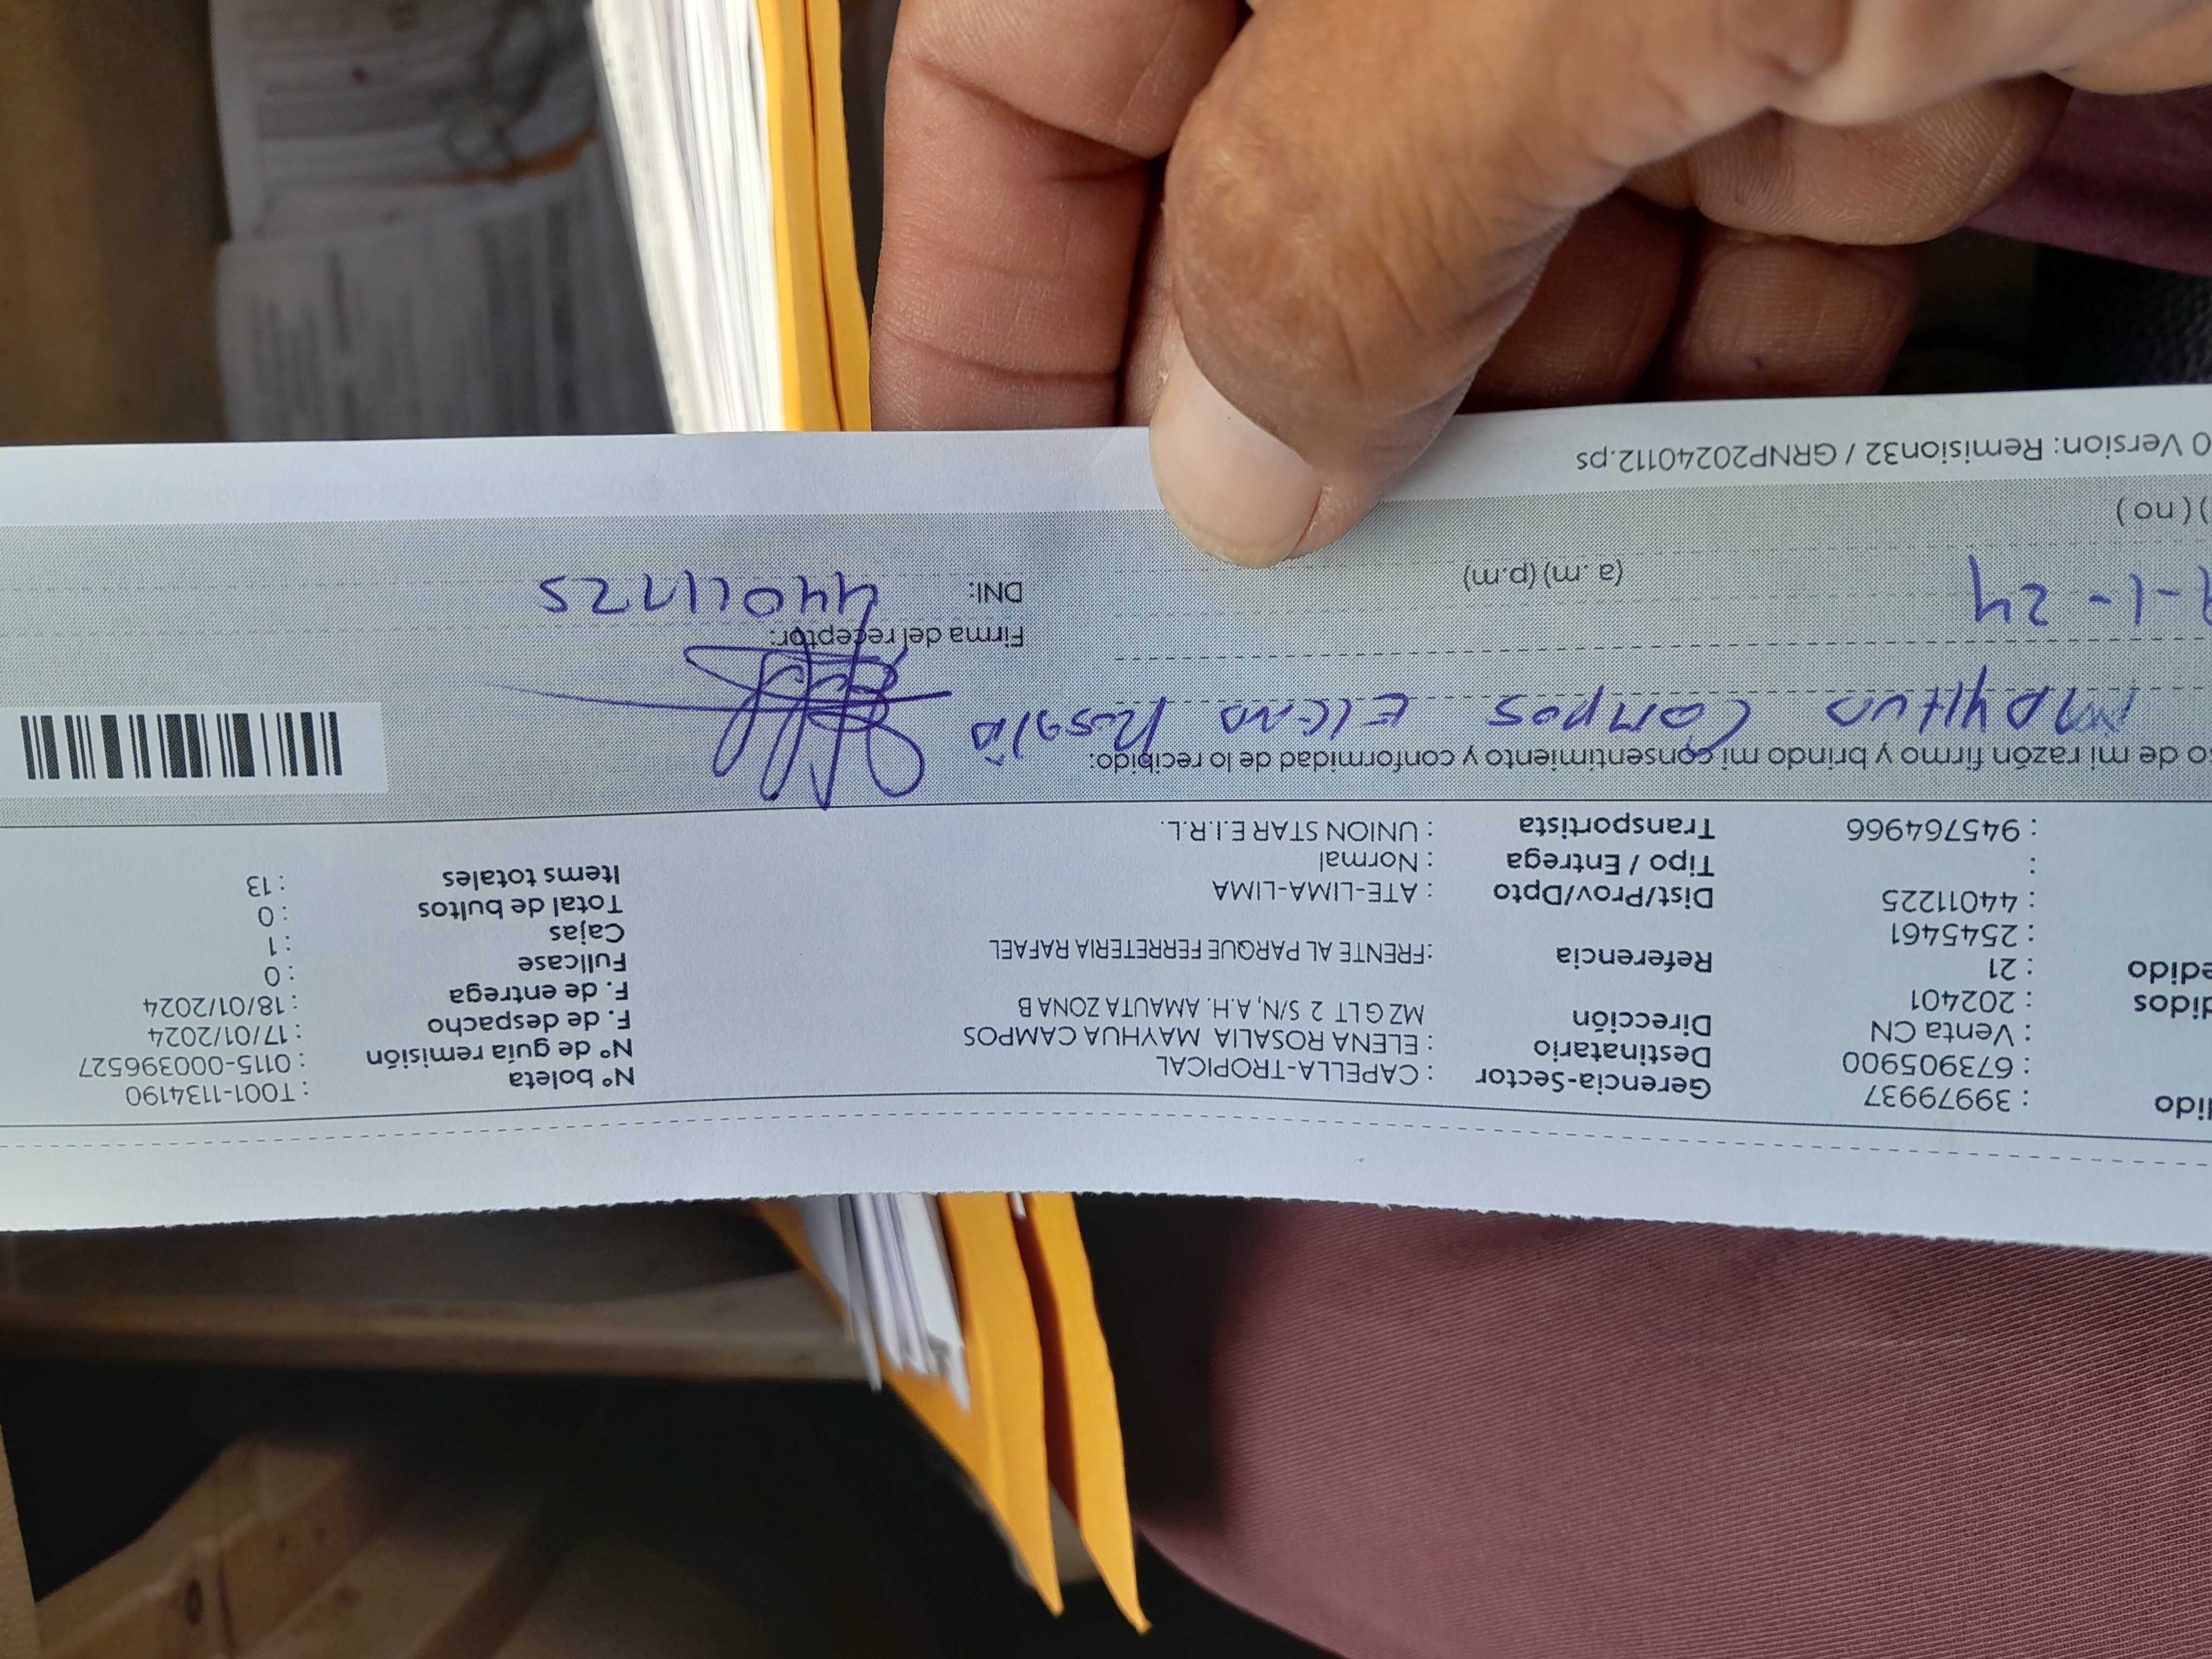 dido : 39979937 Gerencia-Sector : CAPELLA-TROPICAL Nº boleta : T001-1134190
: 673905900 Destinatario : ELENA ROSALIA MAYHUA CAMPOS Nº de guía remisión : 0115-000396527
: Venta CN Dirección MZ G LT 2 S/N, A.H. AMAUTA ZONA B F. de despacho : 17/01/2024
didos : 202401 F. de entrega : 18/01/2024
edido : 21 Referencia :FRENTE AL PARQUE FERRETERIA RAFAEL Fullcase : 0
: 2545461 Cajas : 1
: 44011225 Dist/Prov/Dpto : ATE-LIMA-LIMA Total de bultos : 0
: Tipo / Entrega : Normal Items totales : 13
: 945764966 Transportista : UNION STAR E.I.R.L.
o de mi razón firmo y brindo mi consentimiento y conformidad de lo recibido:
Mayhua Campos Elena Rosalia
Firma del receptor:
-1-24 (a.m) (p.m) DNI: 44011225
) ( no )
0 Version: Remision32 / GRNP20240112.ps